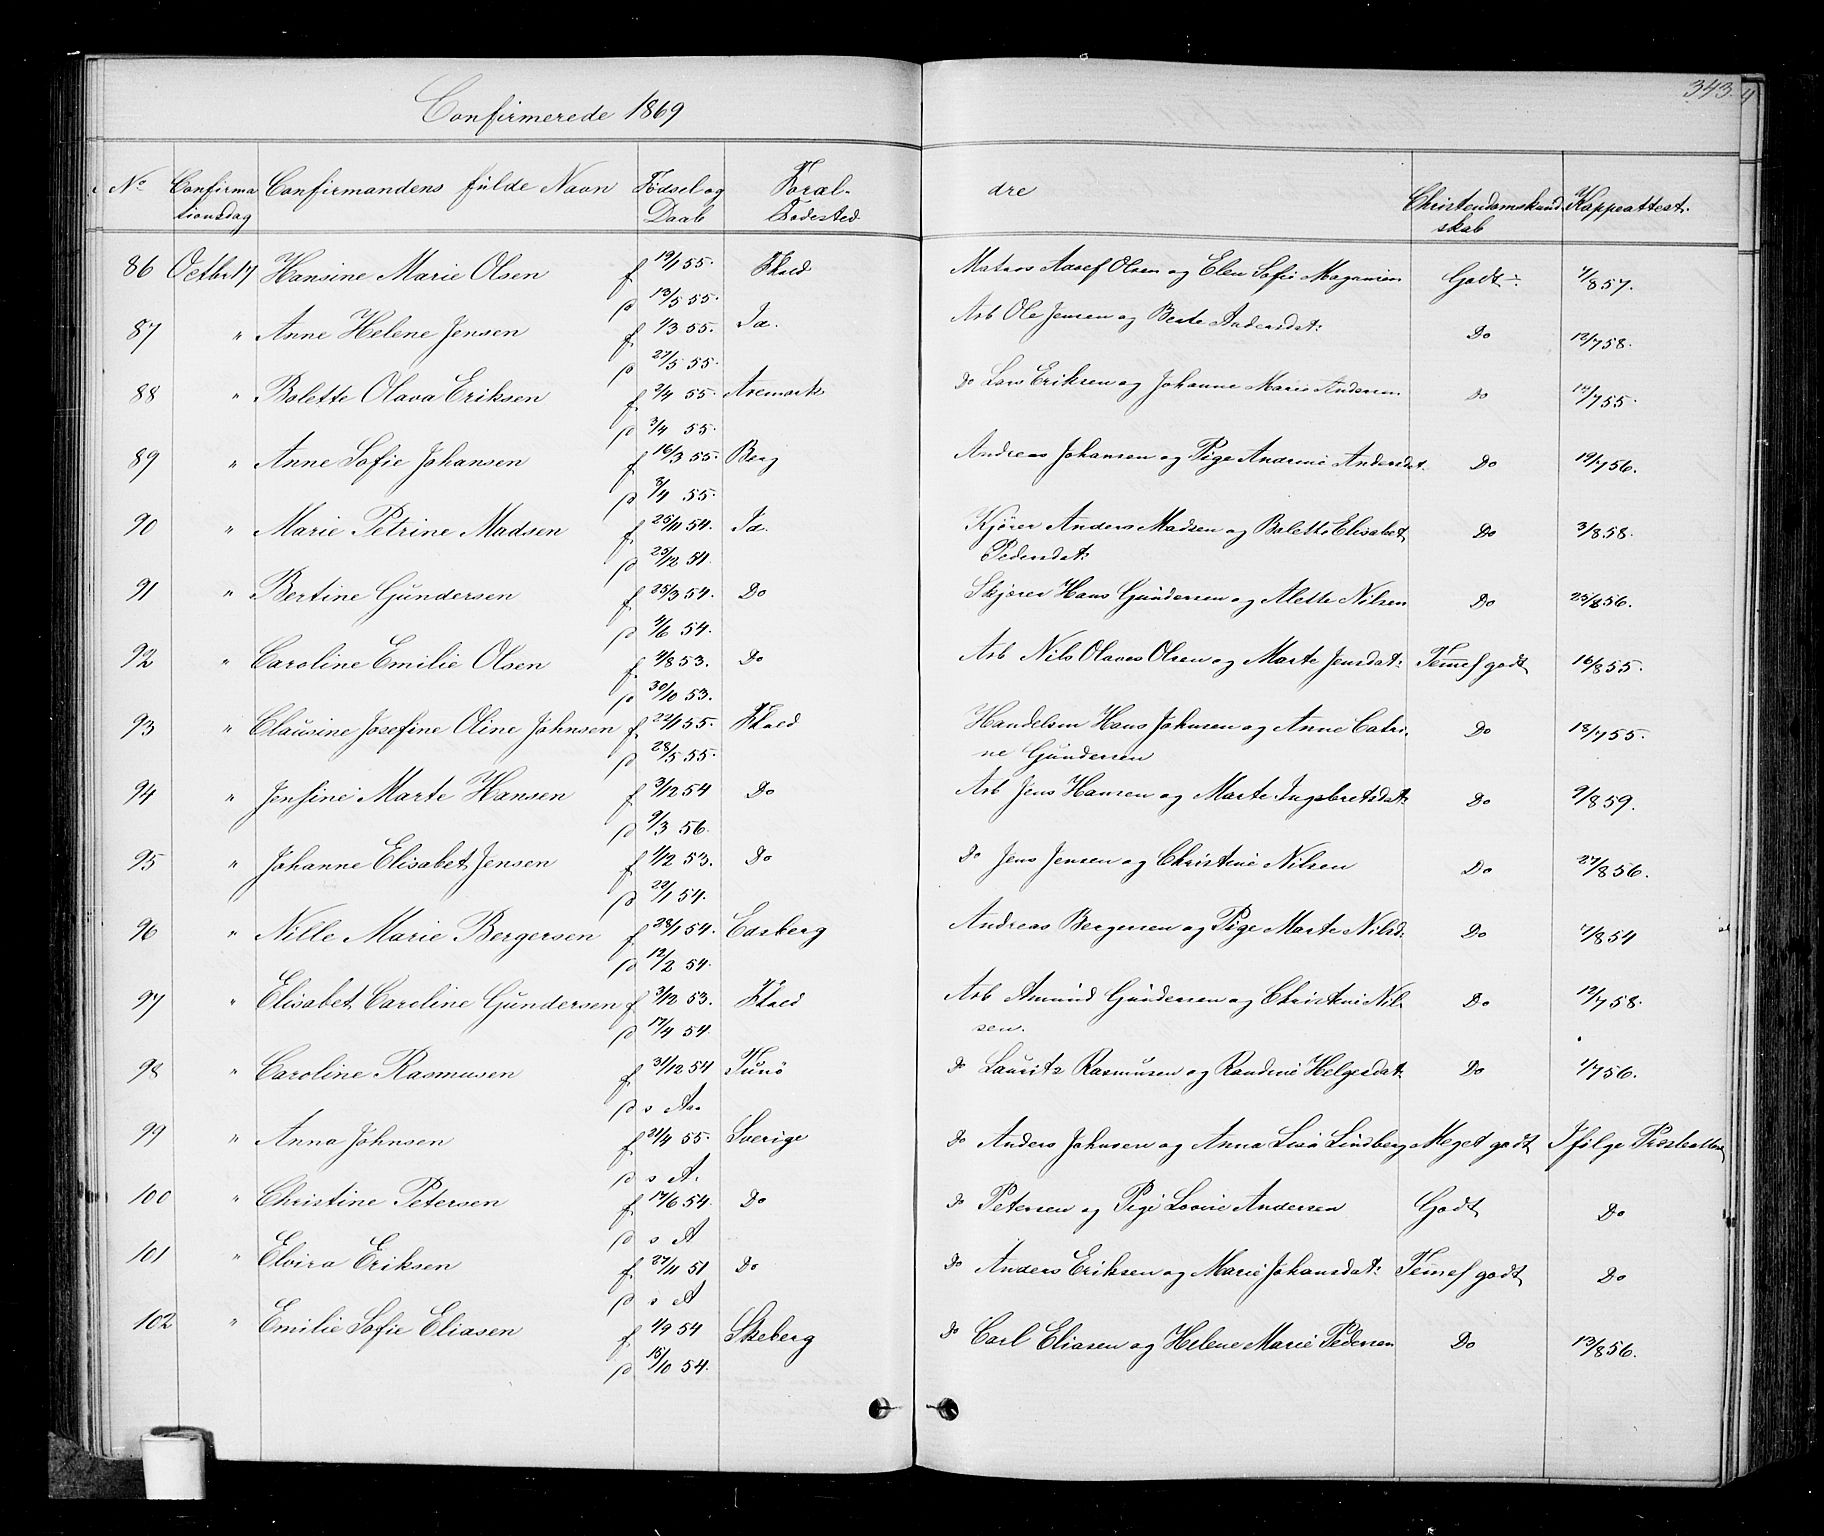 343.
Confirmerede 1869
No Confirma Confirmandens fulde Navn Fødsel og Foræl- dre Christendomskund Koppeattest.
tionsdag Daab Fødested skab
86 Octbr 17 Hansine Marie Olsen f 19/1 55. Fhald Matros Olsen og Elen Sofie Godt 7/8 57.
p 13/5 55.
87 " Anne Helene Jensen f 1/3 55. Id. Arb Ole Jensen og Berte Andersdat: Do 12/7 58.
p 27/5 55.
88 " Bolette Olava Eriksen f 2/4 55. Aremark Do Lars Eriksen og Johanne Marie Andersen Do 17/7 55.
p 3/4 55.
89 " Anne Sofie Johansen f 16/3 55. Berg Andreas Johansen og Pige Andrine Andersdat. Do 19/7 56.
p 3/4 55.
90 " Marie Petrine Madsen f 25/11 54. Id. Kjører Anders Madsen og Bolette Elisabet Do 3/8 58.
p 25/12 54. Pedersdat:
91 " Bertine Gundersen f 25/3 54. Do Skjører Hans Gundersen og Alette Nilsen Do 25/8 56.
p 4/6 54.
92 " Caroline Emilie Olsen f 4/8 53. Do Arb Nils Olaves Olsen og Marte Jensdat: Temef godt 16/8 55.
p 30/10 53.
93 " Clausine Josefine Oline Johnsen f 22/1 55. Fhald Handelsm Hans Johnsen og Anne Catri- Do 18/7 55.
p 28/5 55. ne Gundersen
94 " Jensine Marte Hansen f 3/12 54 Do Arb Jens Hansen og Marte Ingebretsdat: Do 9/8 59.
p 9/3 56.
95 " Johanne Elisabet Jensen f 1/12 53. Do Do Jens Jensen og Christine Nilsen Do 27/8 56.
p 22/1 54.
96 " Nille Marie Bergersen f 28/1 54. Easberg Andreas Bergersen og Pige Marte Nilsd: Do 7/8 54
p 12/2 54.
97 " Elisabet Caroline Gundersen f 3/12 53. Fhald Arb Amund Gundersen og Christine Nil- Do 12/7 58.
p 17/4 54. sen.
98 " Caroline Rasmusen f 31/12 54 Tunø Do Lauritz Rasmusen og Randine Helgesdat: Do 1/7 56.
p s A.
99 " Anna Johnsen f 21/4 55. Sverige Do Anders Johnsen og Anna Lisa Lindberg Meget godt Ifølge
p s A.
100 " Christine Petersen f 17/6 54. Do Do Petersen og Pige Lovise Andersen Godt Do
p s A
101 " Elvira Eriksen f 27/11 51 Do Do Anders Eriksen og Marie Johansdat: Temef godt Do
p s A
102 " Emilie Sofie Eliasen f 1/9 54 Skeberg Do Carl Eliasen og Helene Marie Pedersen Do 13/8 56.
p 15/10 54.